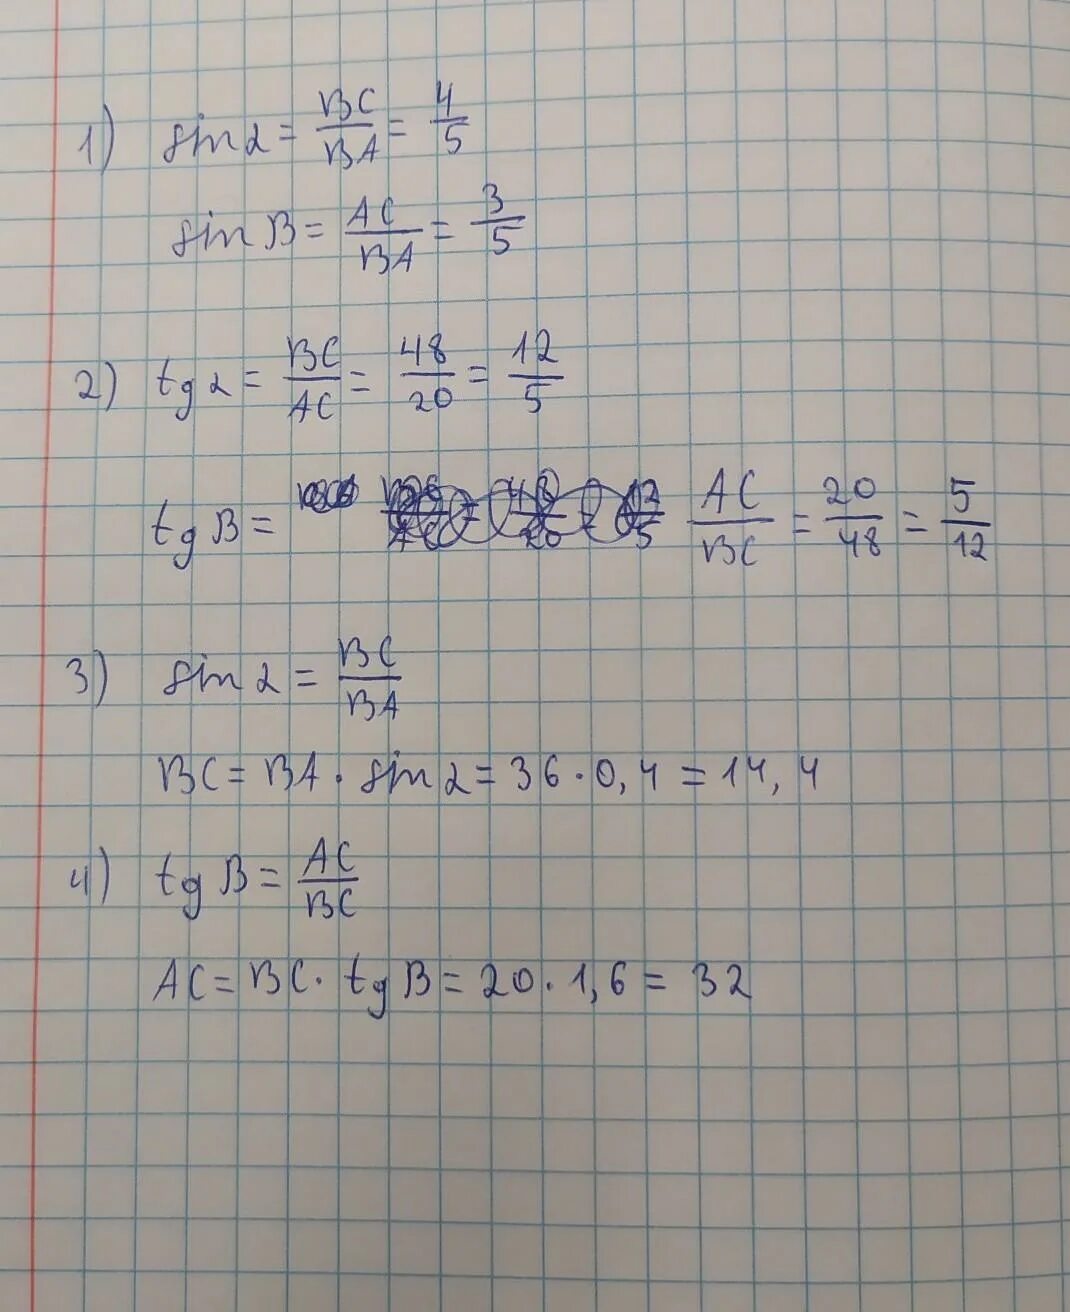 1) sin α = BC/BA = 4/5
sin B = AC/BA = 3/5
2) tg α = BC/AC = 48/20 = 12/5
tg B = AC/BC = 20/48 = 5/12
3) sin α = BC/BA
BC = BA · sin α = 36 · 0,4 = 14,4
4) tg B = AC/BC
AC = BC · tg B = 20 · 1,6 = 32